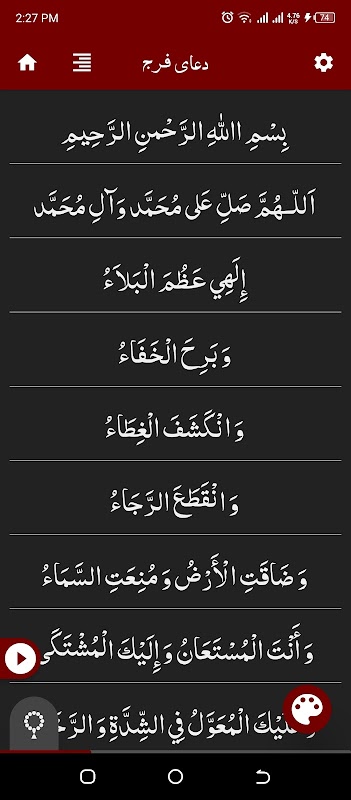 2:27 PM 4.76 K/S 74
دعای فرج
بِسْمِ اللهِ الرَّحْمنِ الرَّحِيمِ
اَللّـهُمَّ صَلِّ عَلى مُحَمَّد وَآلِ مُحَمَّد
إِلَهِي عَظُمَ الْبَلاَءُ
وَ بَرِحَ الْخَفَاءُ
وَ انْكَشَفَ الْغِطَاءُ
وَ انْقَطَعَ الرَّجَاءُ
وَ ضَاقَتِ الْأَرْضُ وَ مُنِعَتِ السَّمَاءُ
وَ أَنْتَ الْمُسْتَعَانُ وَ إِلَيْكَ الْمُشْتَكَى
الْمُعَوَّلُ فِي الشِّدَّةِ وَ